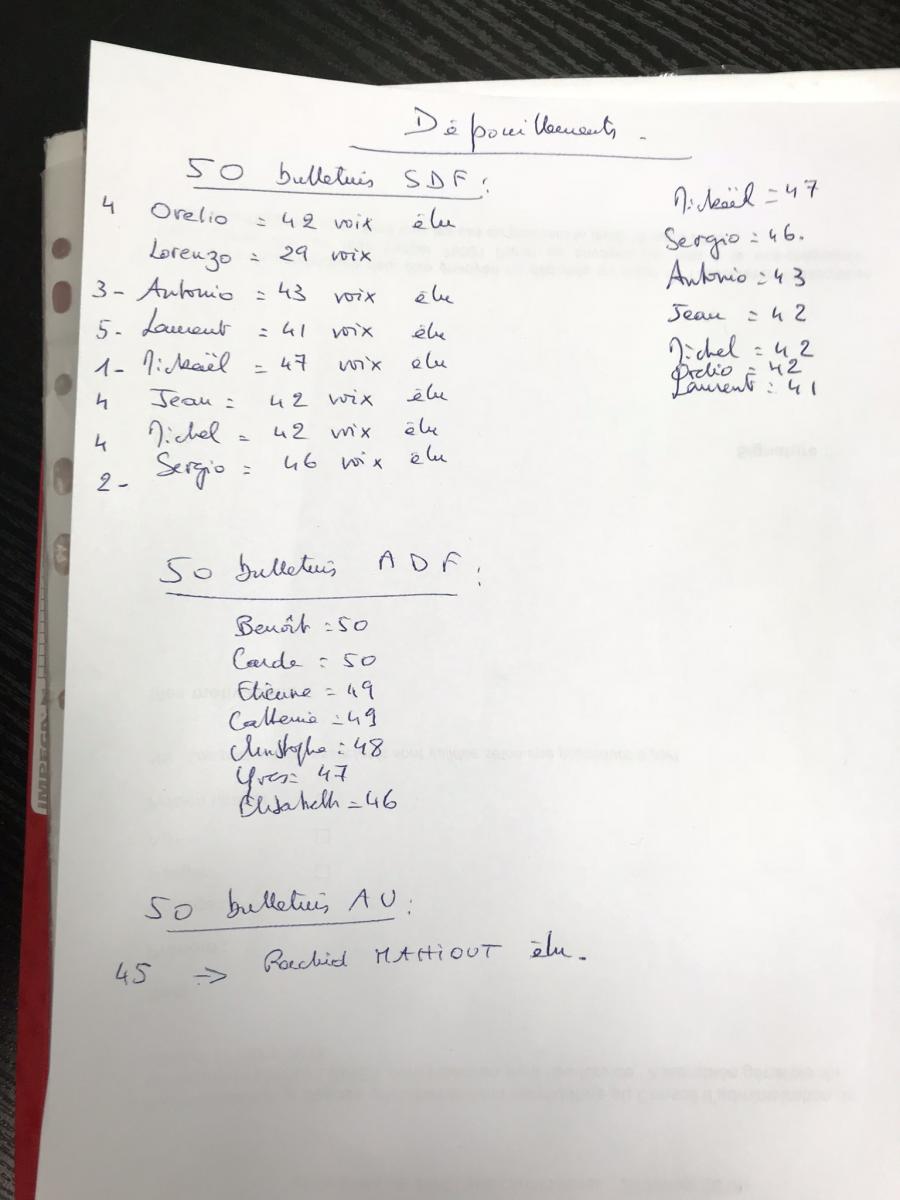 Dépouillements.
50 bulletins SDF:
4 Orelio = 42 voix élu
Lorenzo = 29 voix
3- Antonio = 43 voix élu
5- Laurent = 41 voix élu
1- Mickaël = 47 voix élu
4 Jean = 42 voix élu
4 Michel = 42 voix élu
2- Sergio = 46 voix élu
Mickaël = 47
Sergio = 46.
Antonio = 43
Jean = 42
Michel = 42
Orelio = 42
Laurent = 41
50 bulletins ADF:
Benoît = 50
Carde = 50
Etienne = 49
Catherine = 49
Christophe = 48
Yves = 47
Elisabeth = 46
50 bulletins AU:
45 => Rachid MAHIOUT élu.